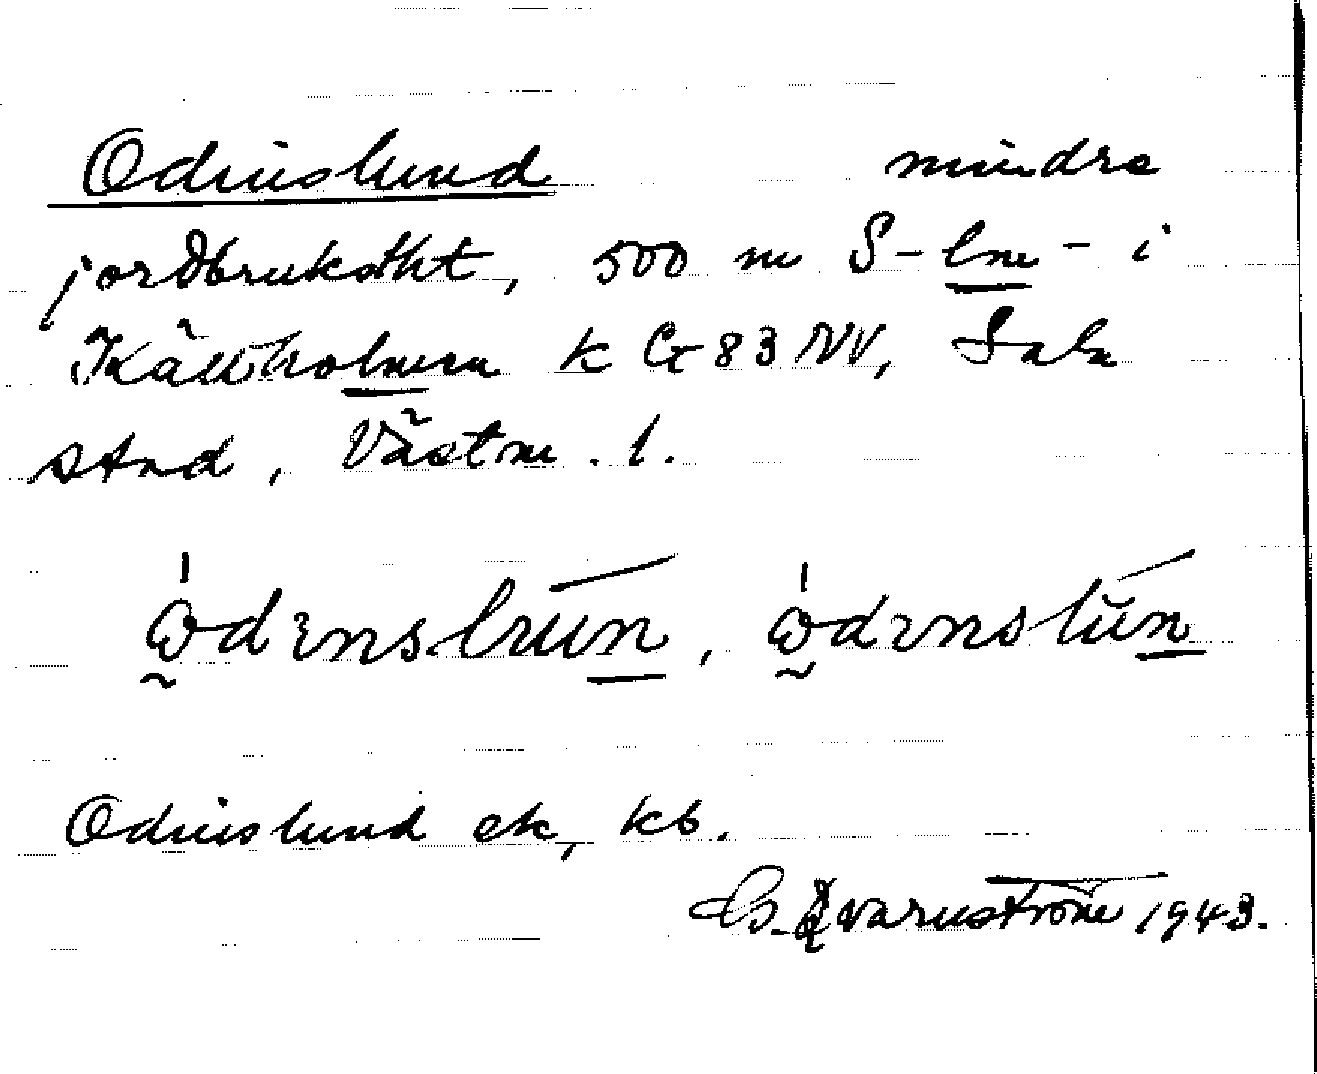 Odinslund mindre
jordbrukstkt, 500 m S-lm- i
Källholmen k G 83 NV, Sala
stad, Västm. l.
ὼdɛnslun, ὼdɛnslun
Odinslund ek, kb.
G. Qvarnström 1943.